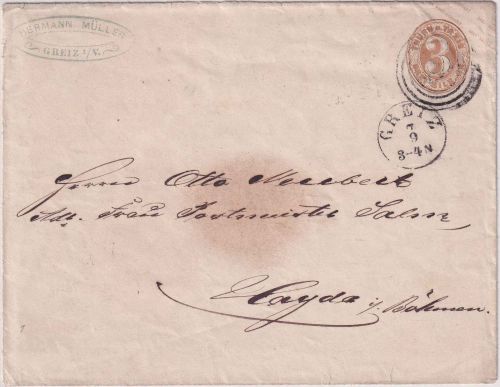 HERMANN MÜLLER
GREIZ i/V.
THURN u. TAXIS
3
GREIZ
7
9
3-4N
Herrn Otto
Adr. Frau Postmeister Salm
Hayda i/ Böhmen.